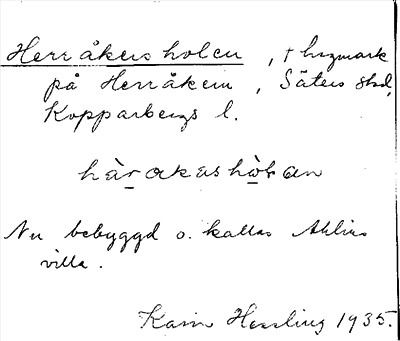 Herråkersholen, † hagmark
på Herråkern, Säters stad,
Kopparbergs l.
hàrakashòlan
Nu bebyggd o. kallas Ahlins
villa.
Karin Hessling 1935.